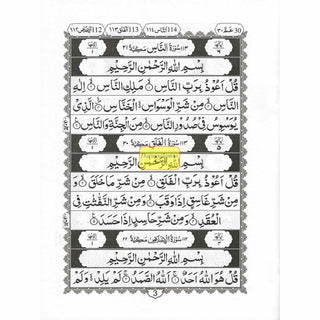 30 عم ٣٠ 114 الناس ١١٤ 113 الفلق ١١٣ 112
سُوْرَةُ النَّاسِ مَكِّيَّةٌ ٢١
بِسْمِ اللهِ الرَّحْمٰنِ الرَّحِيْمِ
قُلْ اَعُوْذُ بِرَبِّ النَّاسِ مَلِكِ النَّاسِ اِلٰهِ
النَّاسِ مِنْ شَرِّ الْوَسْوَاسِ الْخَنَّاسِ الَّذِيْ
يُوَسْوِسُ فِيْ صُدُوْرِ النَّاسِ مِنَ الْجِنَّةِ وَالنَّاسِ
١١٣ سُوْرَةُ الْفَلَقِ مَكِّيَّةٌ ٢٠
بِسْمِ اللهِ الرَّحْمٰنِ الرَّحِيْمِ
قُلْ اَعُوْذُ بِرَبِّ الْفَلَقِ مِنْ شَرِّ مَا خَلَقَ وَ
مِنْ شَرِّ غَاسِقٍ اِذَا وَقَبَ وَمِنْ شَرِّ النَّفّٰثٰتِ فِي
الْعُقَدِ وَمِنْ شَرِّ حَاسِدٍ اِذَا حَسَدَ
١١٢ سُوْرَةُ مَكِّيَّةٌ ٢٢
بِسْمِ اللهِ الرَّحْمٰنِ الرَّحِيْمِ
قُلْ هُوَ اللهُ اَحَدٌ اَللهُ الصَّمَدُ لَمْ يَلِدْ وَلَمْ
3